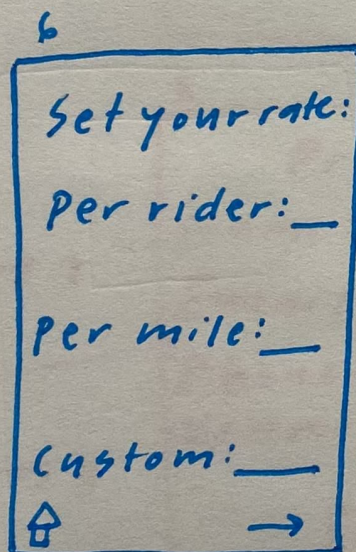 6
Set your rate:
Per rider:__
Per mile:__
Custom:___